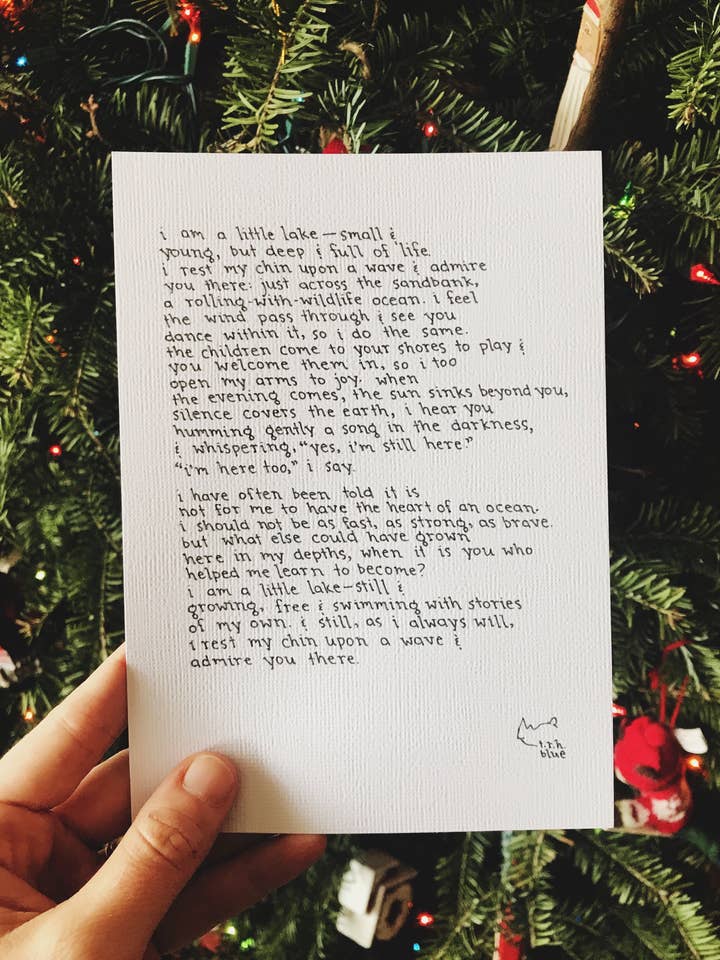 i am a little lake—small &
young, but deep & full of life.
i rest my chin upon a wave & admire
you there: just across the sandbank,
a rolling-with-wildlife ocean. i feel
the wind pass through & see you
dance within it, so i do the same.
the children come to your shores to play &
you welcome them in, so i too
open my arms to joy. when
the evening comes, the sun sinks beyond you,
silence covers the earth, i hear you
humming gently a song in the darkness,
& whispering, "yes, i'm still here."
"i'm here too," i say.
i have often been told it is
not for me to have the heart of an ocean.
i should not be as fast, as strong, as brave.
but what else could have grown
here in my depths, when it is you who
helped me learn to become?
i am a little lake—still &
growing, free & swimming with stories
of my own. & still, as i always will,
i rest my chin upon a wave &
admire you there.
t.r.h.
blue